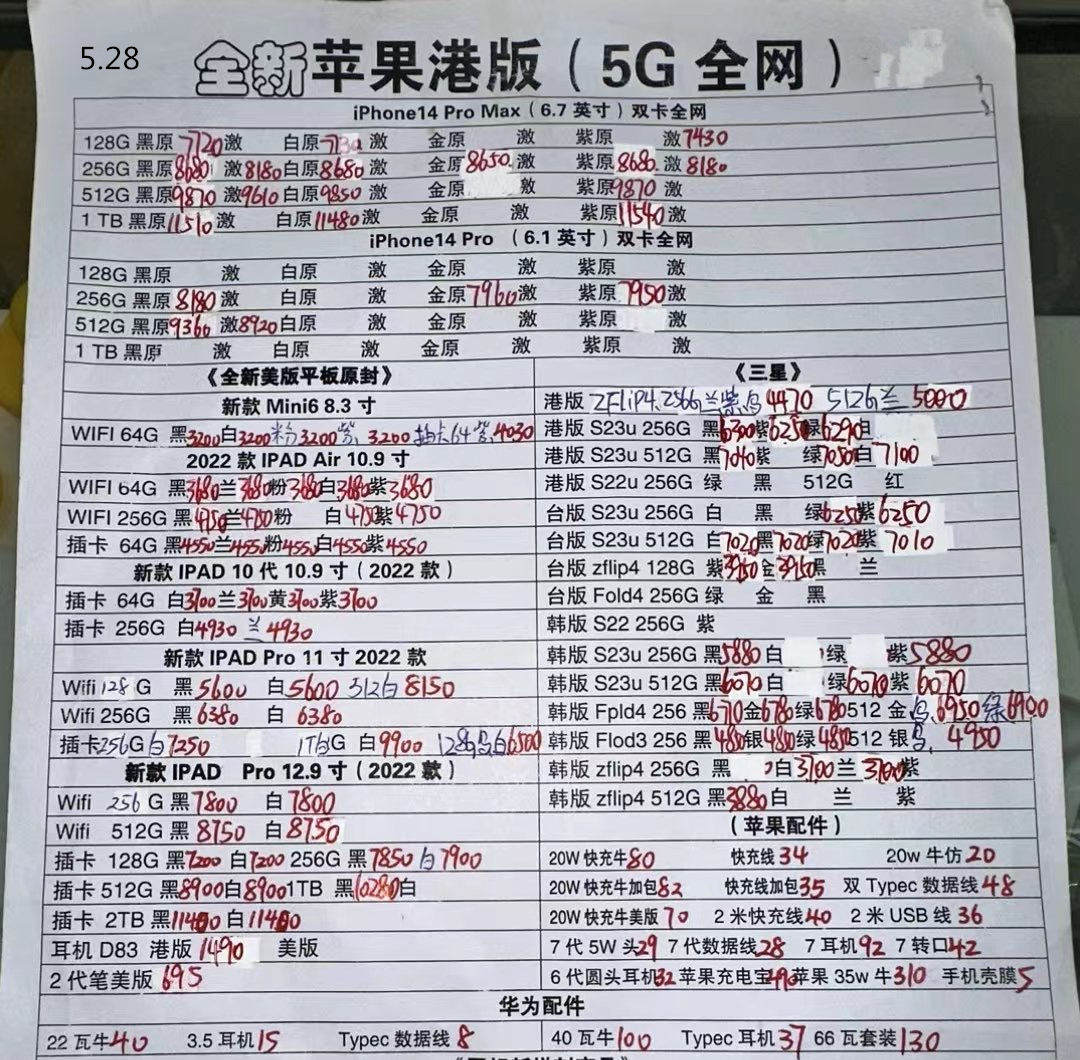 5.28
全新苹果港版（5G 全网）
iPhone14 Pro Max（6.7 英寸）双卡全网
128G 黑原 7720 激 白原 激 金原 激 紫原 激 7430
256G 黑原 8680 激 8180 白原 8680 激 金原 8650 激 紫原 8680 激 8180
512G 黑原 9870 激 9610 白原 9850 激 金原 激 紫原 9870 激
1 TB 黑原 11510 激 白原 11480 激 金原 激 紫原 11540 激
iPhone14 Pro （6.1 英寸）双卡全网
128G 黑原 激 白原 激 金原 激 紫原 激
256G 黑原 8180 激 白原 激 金原 7960 激 紫原 7950 激
512G 黑原 9360 激 8920 白原 激 金原 激 紫原 激
1 TB 黑原 激 白原 激 金原 激 紫原 激
《全新美版平板原封》
新款 Mini6 8.3 寸
WIFI 64G 黑 3200 白 3200 粉 3200 紫 3200 插卡64 紫 4030
2022 款 IPAD Air 10.9 寸
WIFI 64G 黑 3680 兰 3680 粉 3680 白 3680 紫 3680
WIFI 256G 黑 4750 兰 4750 粉 白 4750 紫 4750
插卡 64G 黑 4550 兰 4550 粉 4550 白 4550 紫 4550
新款 IPAD 10 代 10.9 寸（2022 款）
插卡 64G 白 3700 兰 3700 黄 3700 紫 3700
插卡 256G 白 4930 兰 4930
新款 IPAD Pro 11 寸 2022 款
Wifi 128 G 黑 5600 白 5600 512白 8150
Wifi 256G 黑 6380 白 6380
插卡 256G 白 7250 1TB G 白 9900 128G 乌白 6500
新款 IPAD Pro 12.9 寸（2022 款）
Wifi 256 G 黑 7800 白 7800
Wifi 512G 黑 8750 白 8750
插卡 128G 黑 7200 白 7200 256G 黑 7850 白 7900
插卡 512G 黑 8900 白 8900 1TB 黑 10280 白
插卡 2TB 黑 11400 白 11400
耳机 D83 港版 1490 美版
2 代笔美版 695
《三星》
港版 ZFLiP4 256G 兰紫乌 4470 512G 兰 5000
港版 S23u 256G 黑 6300 紫 6250 绿 6290
港版 S23u 512G 黑 7040 紫 绿 7050 白 7100
港版 S22u 256G 绿 黑 512G 红
台版 S23u 256G 白 黑 绿 6250 紫 6250
台版 S23u 512G 白 7020 黑 7020 绿 7020 紫 7010
台版 zflip4 128G 紫 3950 金 3950 黑 兰
台版 Fold4 256G 绿 金 黑
韩版 S22 256G 紫
韩版 S23u 256G 黑 5880 白 绿 紫 5880
韩版 S23u 512G 黑 6070 白 绿 6070 紫 6070
韩版 Fpld4 256 黑 6710 金 6780 绿 6780 512 金 乌 6950 绿 6900
韩版 Flod3 256 黑 4850 银 4850 绿 4850 512 银 乌 4950
韩版 zflip4 256G 黑 白 3700 兰 3700 紫
韩版 zflip4 512G 黑 3880 白 兰 紫
（苹果配件）
20W 快充牛 80 快充线 34 20w 牛仿 20
20W 快充牛加包 82 快充线加包 35 双 Typec 数据线 48
20W 快充牛美版 70 2 米快充线 40 2 米 USB 线 36
7 代 5W 头 29 7 代数据线 28 7 耳机 92 7 转口 42
6 代圆头耳机 32 苹果充电宝 490 苹果 35w 牛 310 手机壳膜 5
华为配件
22 瓦牛 40 3.5 耳机 15 Typec 数据线 8 40 瓦牛 100 Typec 耳机 37 66 瓦套装 130